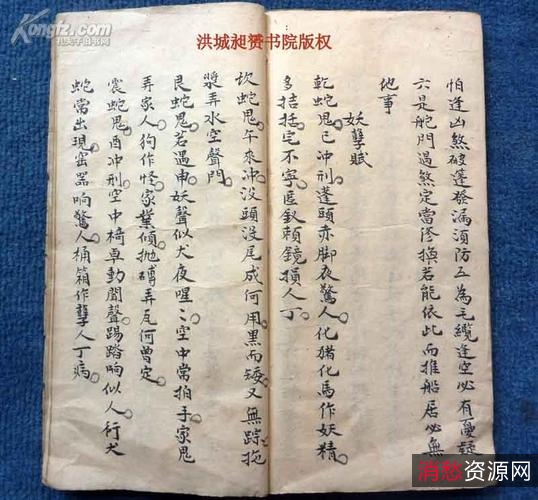 Kongfz.com
孔夫子旧书网
洪城昶赞书院版权
怕逢凶煞破蓬發漏須防五為毛纜逢空必有憂疑
六是舵門遇煞定當修換若能依此而推船居必無
他事
妖孽賦
乾蛇鬼巳冲刑蓬頭赤脚夜驚人化猪化馬作妖精
多拮括宅不寧匿釵頼鏡損人丁
坎蛇鬼午來冲没頭没尾成何用黑而矮又無踪拖
漿弄水空聲鬥
艮蛇鬼若遇申妖聲似犬夜喤々空中常拍手家鬼
弄家人狗作怪家業傾抛磚弄瓦何曾定
震蛇鬼酉冲刑空中椅卓動聞聲踢踏响似人行犬
蛇當出現窑器响驚人桶箱作孽人丁病
消愁资源网